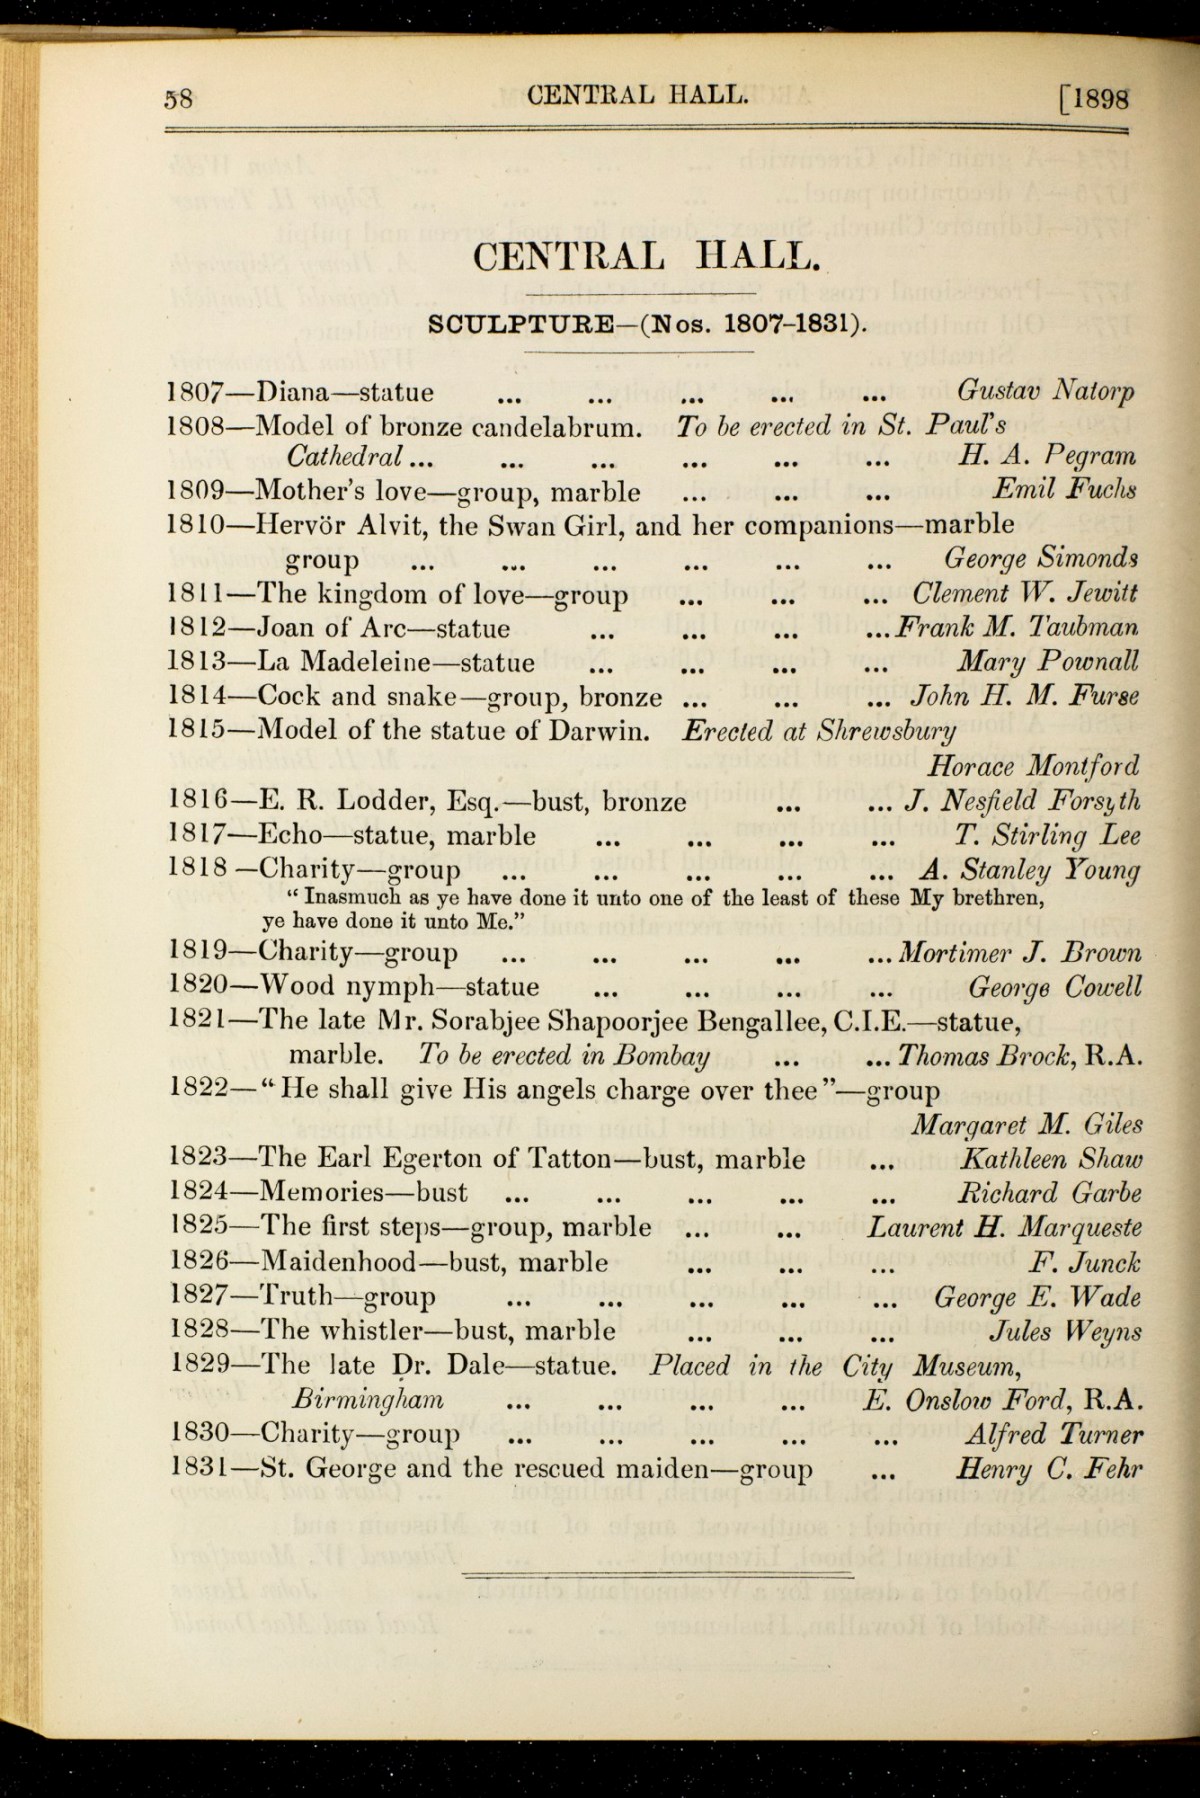 58 CENTRAL HALL. [1898
CENTRAL HALL.
SCULPTURE—(Nos. 1807-1831).
1807—Diana—statue ... ... ... ... ... Gustav Natorp
1808—Model of bronze candelabrum. To be erected in St. Paul's
Cathedral ... ... ... ... ... ... H. A. Pegram
1809—Mother's love—group, marble ... ... ... Emil Fuchs
1810—Hervör Alvit, the Swan Girl, and her companions—marble
group ... ... ... ... ... ... George Simonds
1811—The kingdom of love—group ... ... ... Clement W. Jewitt
1812—Joan of Arc—statue ... ... ... ... Frank M. Taubman
1813—La Madeleine—statue ... ... ... ... Mary Pownall
1814—Cock and snake—group, bronze ... ... ... John H. M. Furse
1815—Model of the statue of Darwin. Erected at Shrewsbury
Horace Montford
1816—E. R. Lodder, Esq.—bust, bronze ... ... J. Nesfield Forsyth
1817—Echo—statue, marble ... ... ... ... T. Stirling Lee
1818—Charity—group ... ... ... ... ... A. Stanley Young
"Inasmuch as ye have done it unto one of the least of these My brethren,
ye have done it unto Me."
1819—Charity—group ... ... ... ... ... Mortimer J. Brown
1820—Wood nymph—statue ... ... ... ... George Cowell
1821—The late Mr. Sorabjee Shapoorjee Bengallee, C.I.E.—statue,
marble. To be erected in Bombay ... ... Thomas Brock, R.A.
1822—"He shall give His angels charge over thee"—group
Margaret M. Giles
1823—The Earl Egerton of Tatton—bust, marble ... Kathleen Shaw
1824—Memories—bust ... ... ... ... ... Richard Garbe
1825—The first steps—group, marble ... ... Laurent H. Marqueste
1826—Maidenhood—bust, marble ... ... ... F. Junck
1827—Truth—group ... ... ... ... ... George E. Wade
1828—The whistler—bust, marble ... ... ... Jules Weyns
1829—The late Dr. Dale—statue. Placed in the City Museum,
Birmingham ... ... ... ... E. Onslow Ford, R.A.
1830—Charity—group ... ... ... ... ... Alfred Turner
1831—St. George and the rescued maiden—group ... Henry C. Fehr